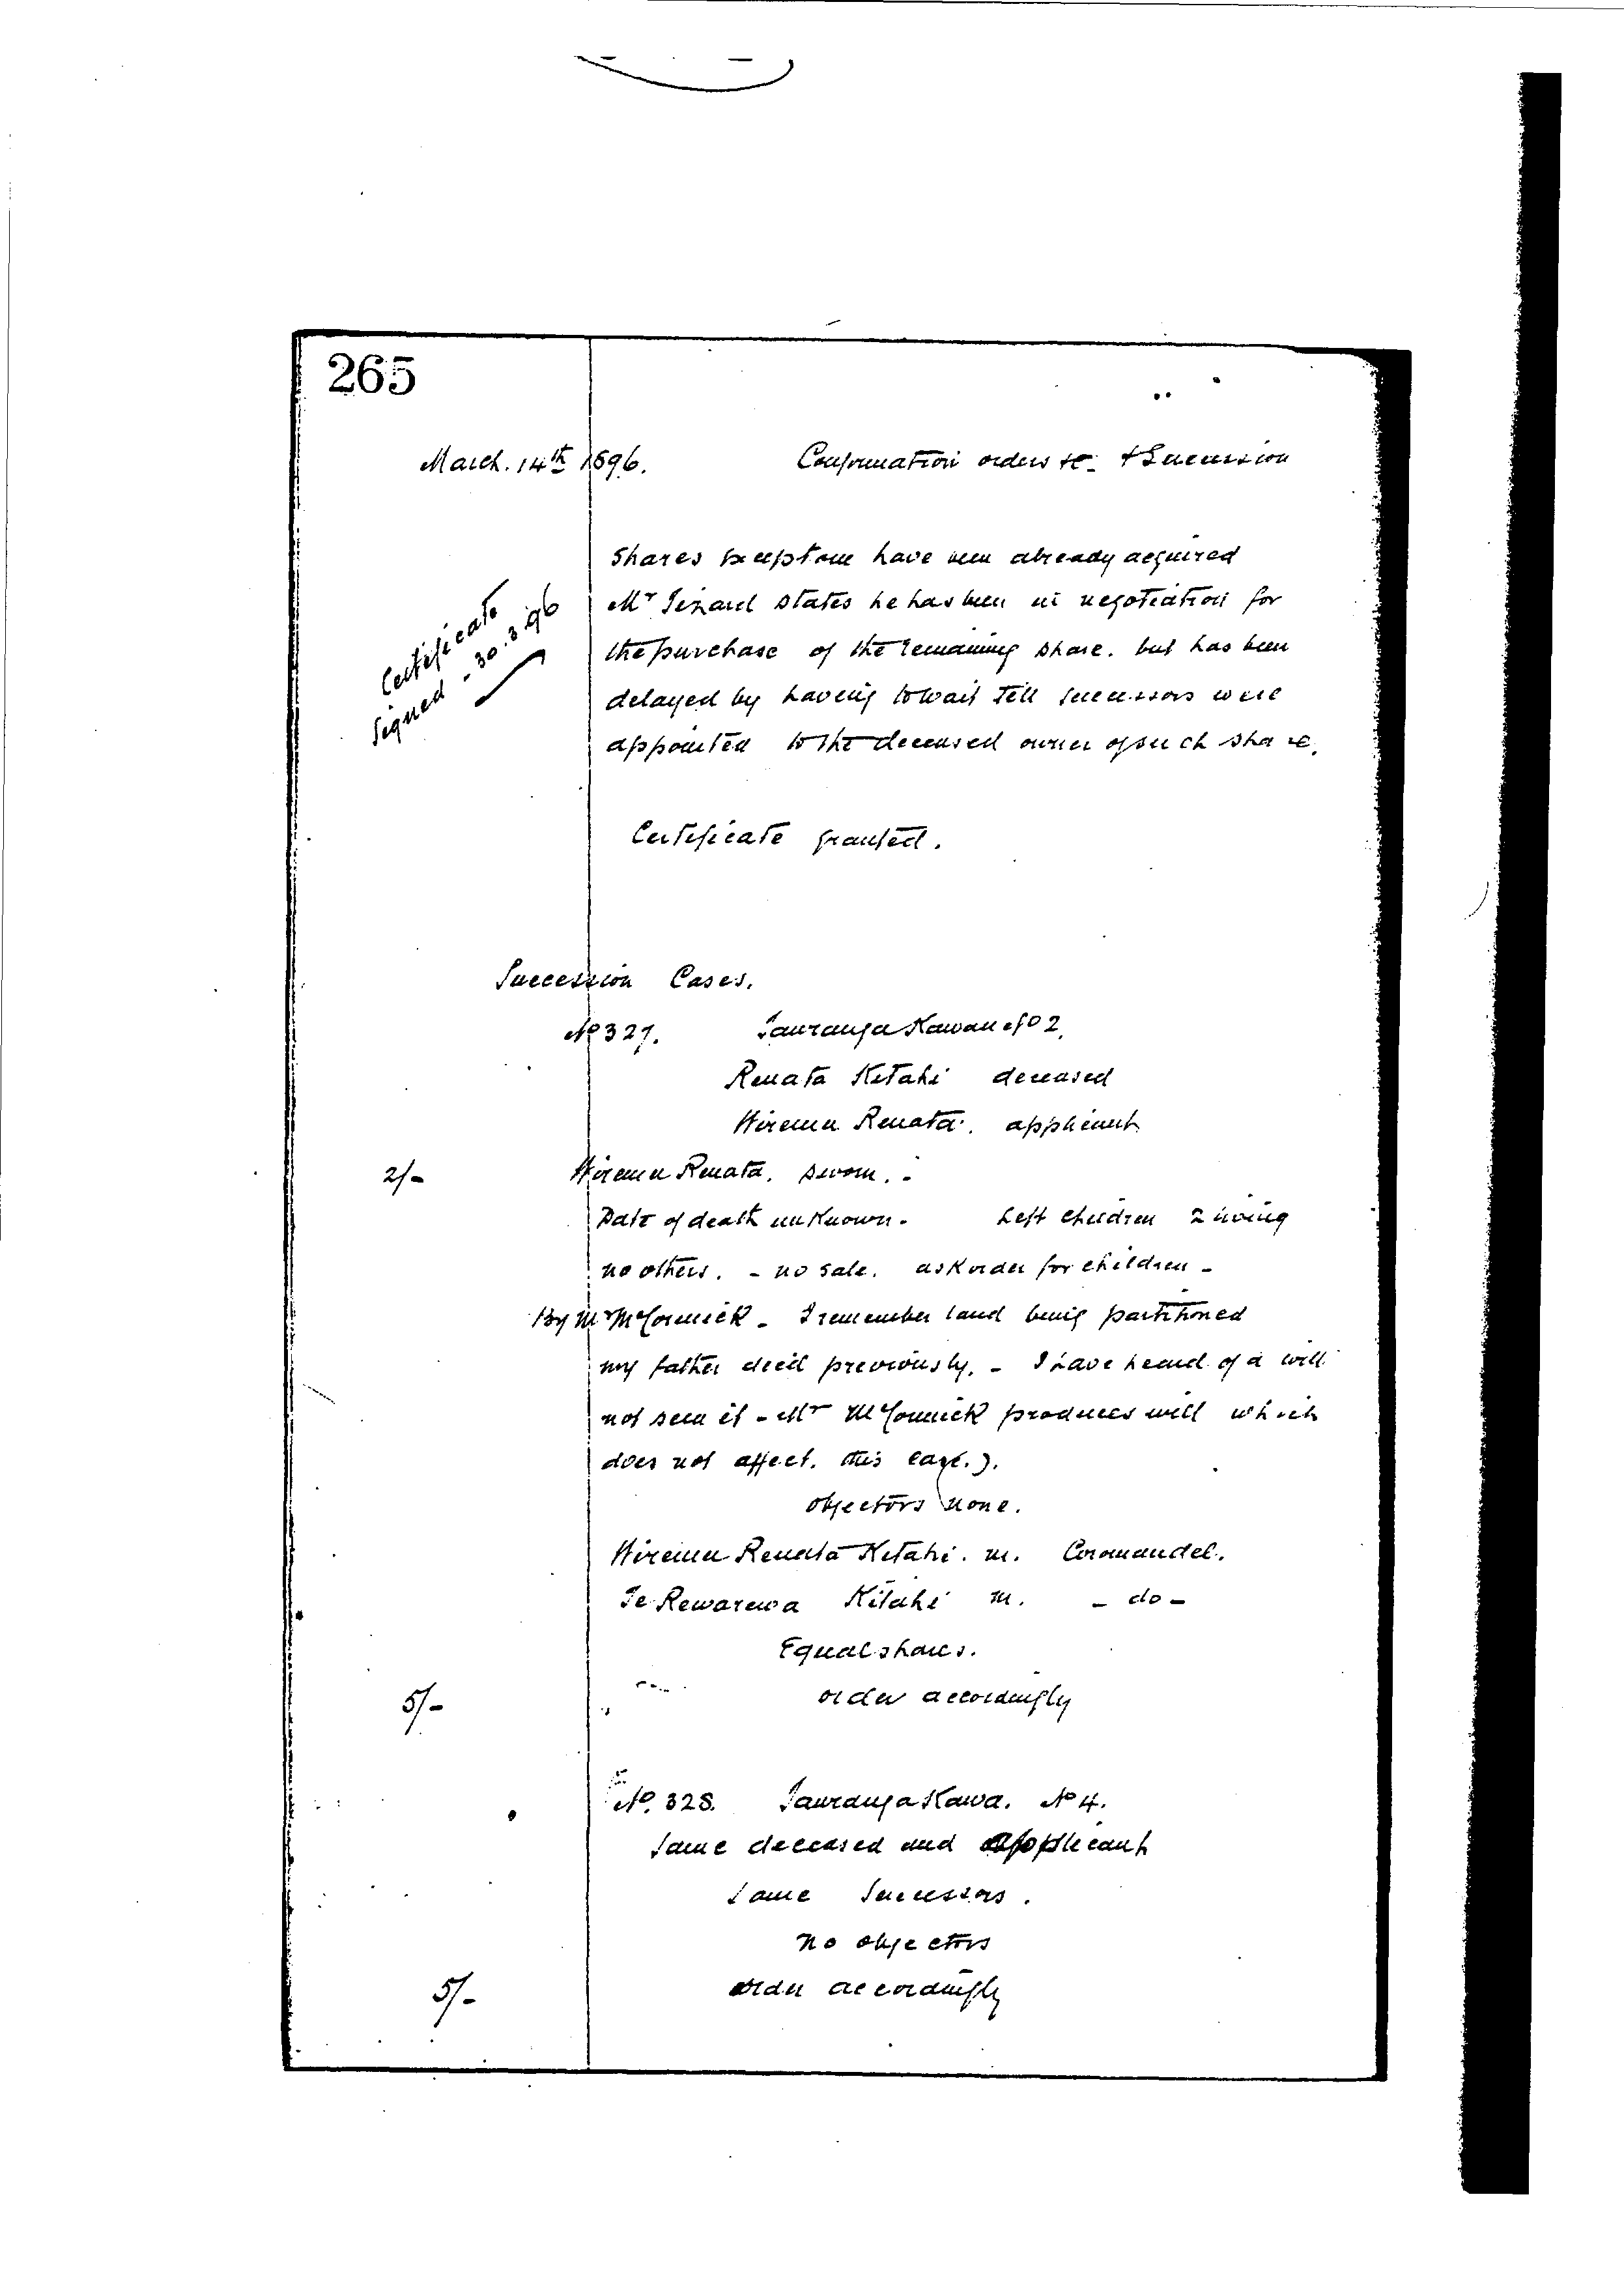 265
March. 14th 1896. Confirmation orders &c. & Succession
Shares except one have been already acquired
Certificate signed - 30.3.96
Mr Tizard states he has been in negotiation for
the purchase of the remaining share. but has been
delayed by having to wait till successors were
appointed to the deceased owner of such share.
Certificate granted.
Succession Cases.
No 327. Tauranga Kawau No 2.
Renata Kitahi deceased
Wiremu Renata. applicant
2/- Wiremu Renata. sworn. -
Date of death unknown. Left children 2 living
no others. - no sale. ask order for children -
By Mr McCormick - I remember land being partitioned
my father died previously. - I have heard of a will
not seen it - Mr McCormick produces will which
does not affect. this case.).
objectors none.
Wiremu Renata Kitahi. m. Coromandel.
Te Rewarewa Kitahi m. - do -
Equal shares.
5/- order accordingly
No. 328. Tauranga Kawa. No 4.
Same deceased and applicant
Same Successors.
no objectors
5/- order accordingly